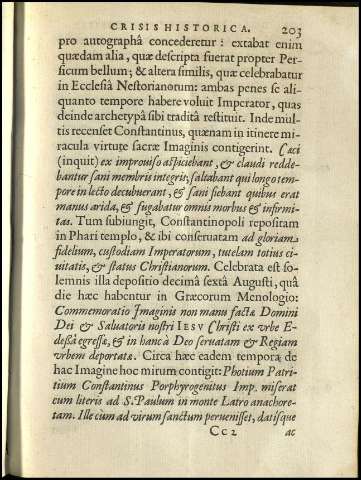 CRISIS HISTORICA. 203
pro autographâ concederetur : extabat enim
quædam alia, quæ descripta fuerat propter Per-
sicum bellum; & altera similis, quæ celebrabatur
in Ecclesiâ Nestorianorum: ambas penes se ali-
quanto tempore habere voluit Imperator, quas
deinde archetypâ sibi traditâ restituit. Inde mul-
tis recenset Constantinus, quænam in itinere mi-
racula virtute sacræ Imaginis contigerint. Cæci
(inquit) ex improuiso aspiciebant, & claudi redde-
bantur sani membris integris, saltabant qui longo tem-
pore in lecto decubuerant, & sani fiebant quibus erat
manus arida, & fugabatur omnis morbus & infirmi-
tas. Tum subiungit, Constantinopoli repositam
in Phari templo, & ibi conseruatam ad gloriam
fidelium, custodiam Imperatorum, tutelam totius ci-
uitatis, & status Christianorum. Celebrata est so-
lemnis illa depositio decima sextâ Augusti, quâ
die hæc habentur in Græcorum Menologio:
Commemoratio Imaginis non manu factæ Domini
Dei & Saluatoris nostri IESV Christi ex vrbe E-
dessâ egressæ, & in hanc à Deo seruatam & Regiam
vrbem deportatæ. Circa hæc eadem tempora de
hac Imagine hoc mirum contigit: Photium Patri-
tium Constantinus Porphyrogenitus Imp. miserat
cum literis ad S. Paulum in monte Latro anachore-
tam. Ille cùm ad virum sanctum peruenisset, datisque
Cc 2 ac